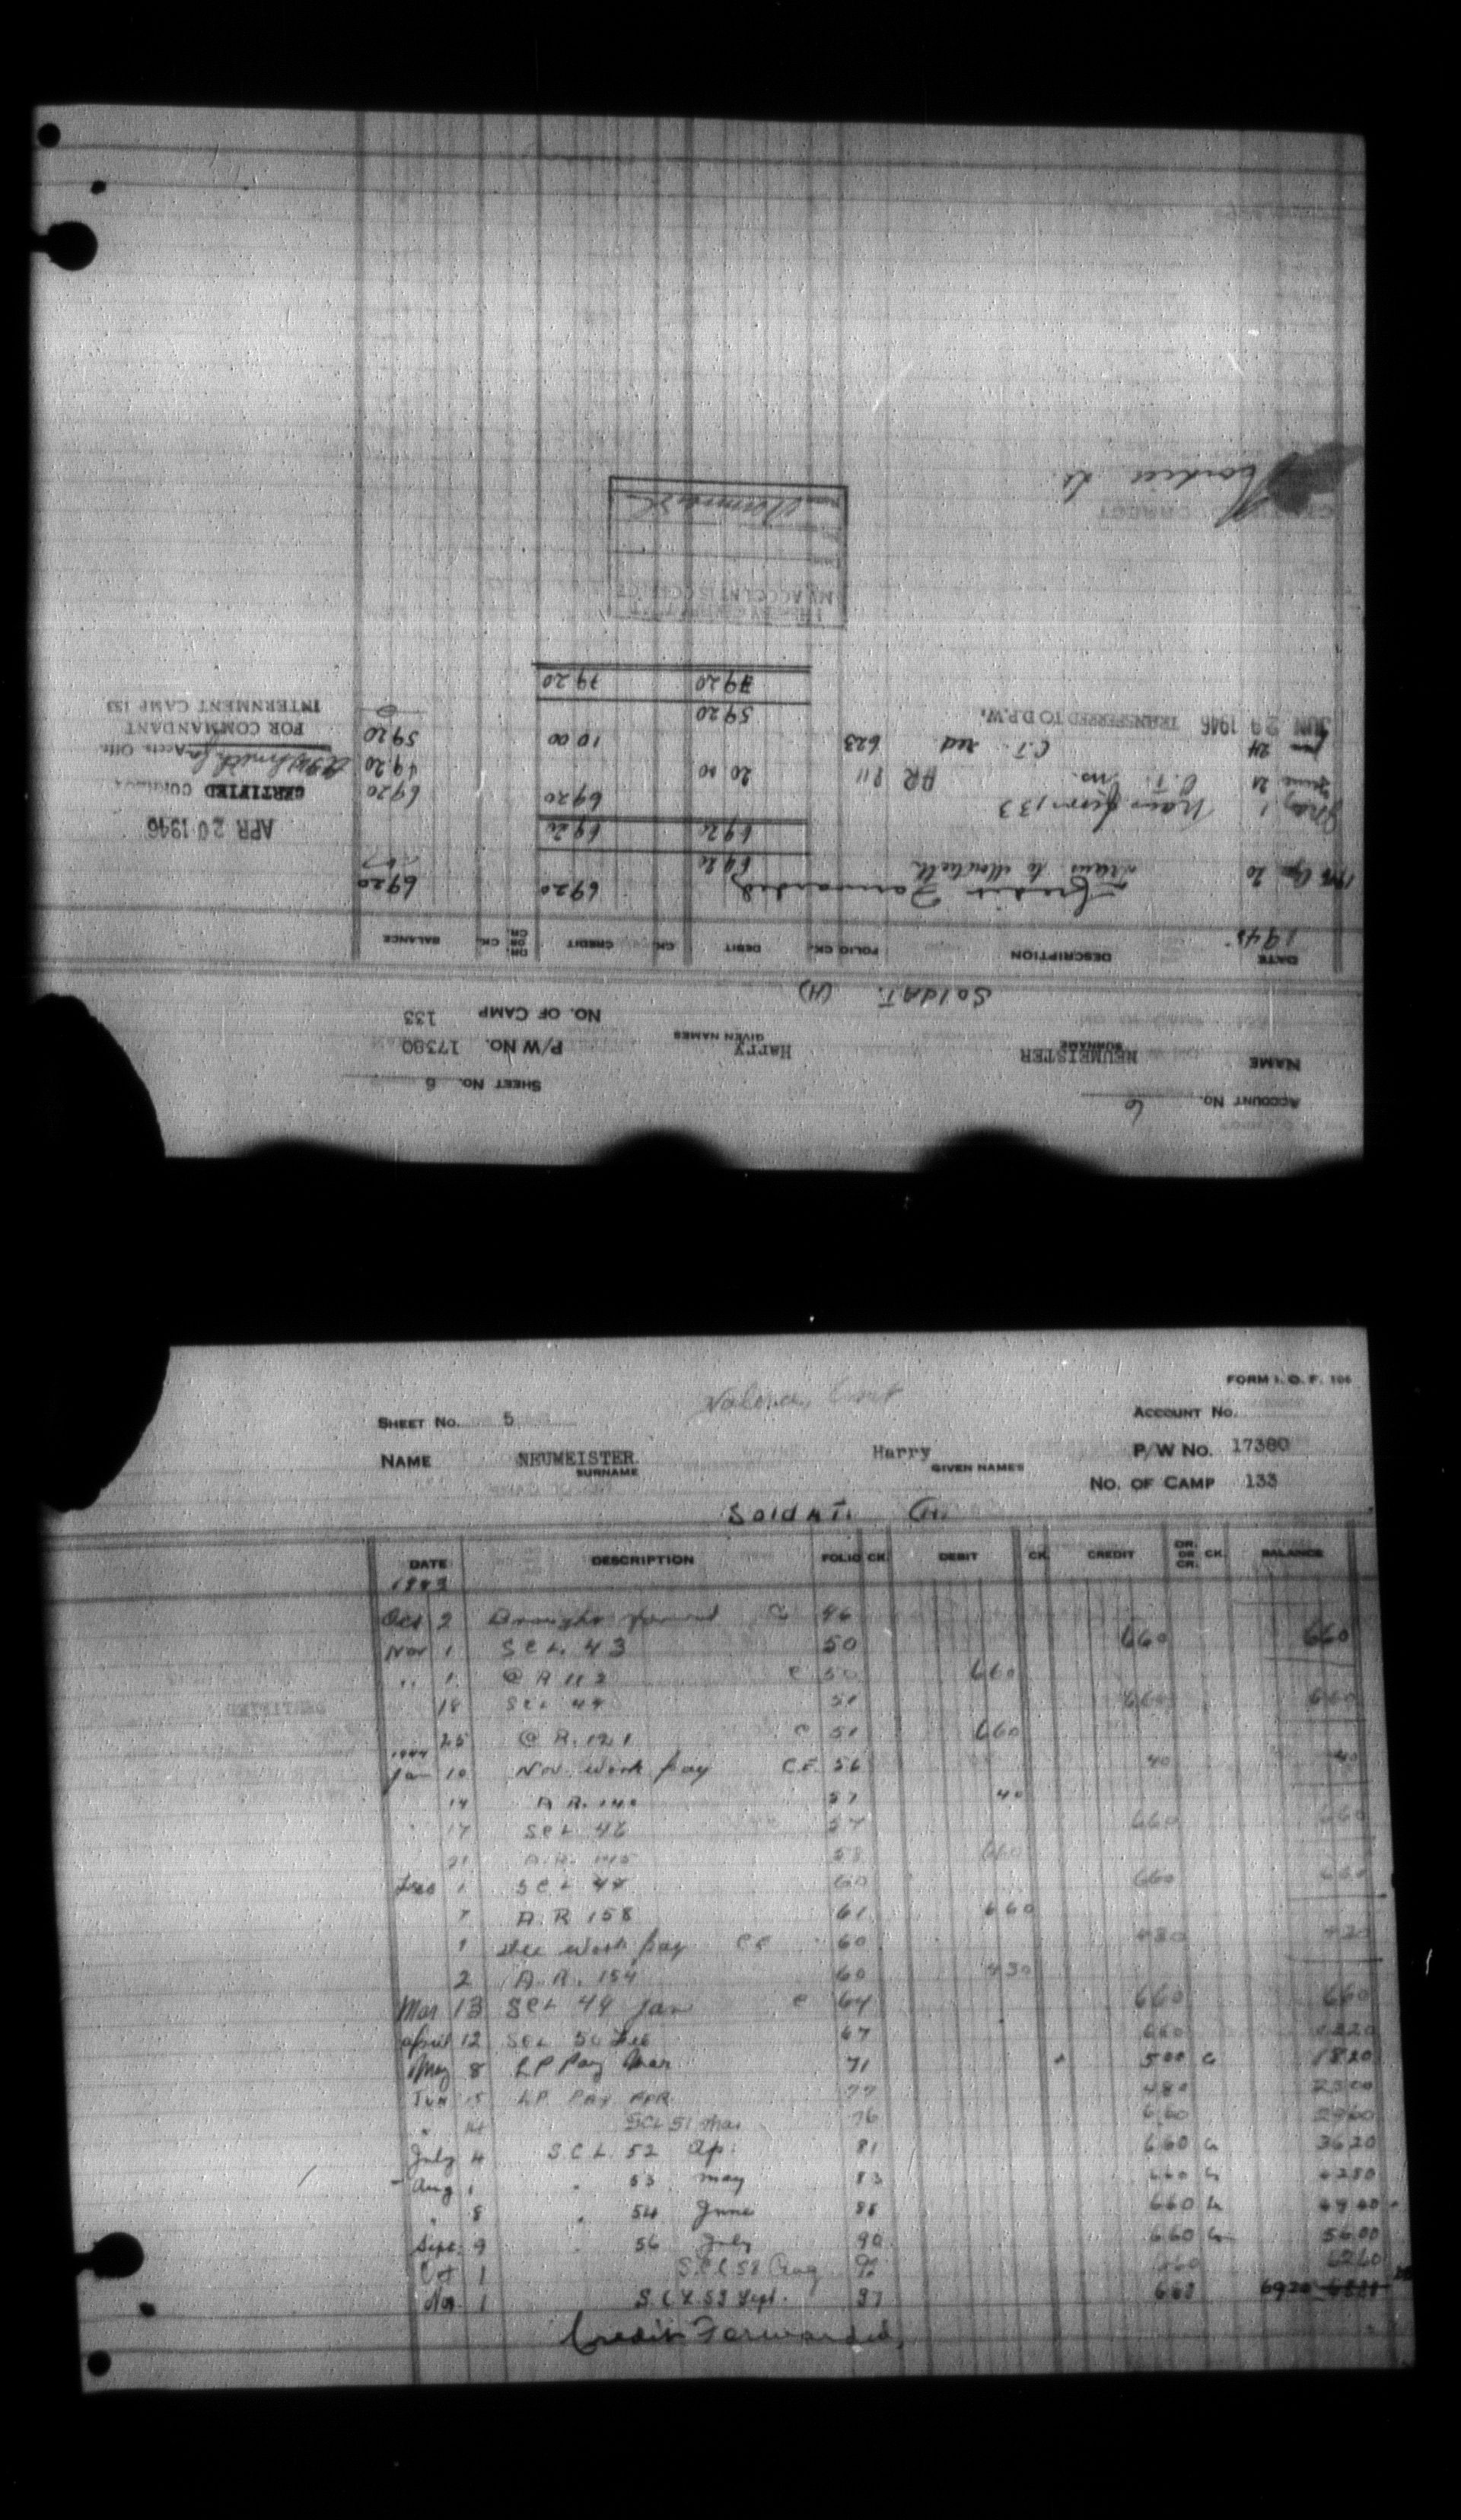 ACCOUNT No. 6 SHEET No. 6
NAME NEUMEISTER Harry P/W No. 17380
SURNAME GIVEN NAMES
NO. OF CAMP 133
SOLDAT. (H)
DATE DESCRIPTION FOLIO CK. DEBIT CK. CREDIT DR. OR CR. CK. BALANCE
1945
Credit Forwarded 6920 6920
1946 Apr 20 Trans to 6920
6920 6920
May 1 Trans from 133 6920 6920
June 21 C.T. AR 811 20 00 4920
24 C.T. red 623 10 00 5920
JUN 29 1946 TRANSFERRED TO D.P.W. 5920 0
7920 7920
APR 20 1946
CERTIFIED CORRECT
Accts. Offr.
FOR COMMANDANT
INTERNMENT CAMP 133
MY ACCOUNT IS CORRECT
FORM I. O. F. 106
SHEET No. 5 ACCOUNT No.
NAME NEUMEISTER Harry P/W No. 17380
SURNAME GIVEN NAMES
NO. OF CAMP 133
SOLDAT. (H)
DATE DESCRIPTION FOLIO CK. DEBIT CK. CREDIT DR. OR CR. CK. BALANCE
1943
Oct 2 Brought forward 46
Nov 1 SCL 43 50 660 660
" 1 C R 112 C 50 660
18 SCL 44 51 660 660
25 C R. 121 C 51 660
1944
Jan 10 Nov. Work pay CE 56 40 40
14 A R. 140 57 40
" 17 SCL 46 57 660 660
21 A.R. 145 58 660
Feb 1 SCL 47 60 660 660
7 A.R 158 61 660
1 Dec Work pay CE 60 430 430
2 A.R. 154 60 430
Mar 13 SCL 49 Jan C 64 660 660
April 12 SCL 50 Feb 67 660 1320
May 8 LP Pay Mar 71 500 1820
Jun 15 LP Pay APR. 77 480 2300
" 14 SCL 51 Mar 76 660 2960
July 4 S.C.L. 52 Ap. 81 660 3620
Aug 1 " 53 may 83 660 4280
" 8 " 54 June 88 660 4940
Sept. 9 " 56 July 90 660 5600
Oct 1 S.C.L 58 Aug 92 660 6260
Nov. 1 S.C.L. 59 Sept. 97 660 6920
Credit Forwarded.